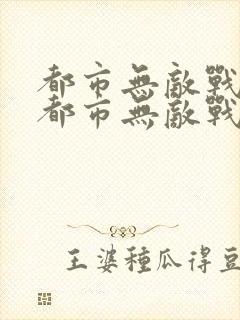 都市無敵戰
都市無敵戰
王婆種瓜得豆